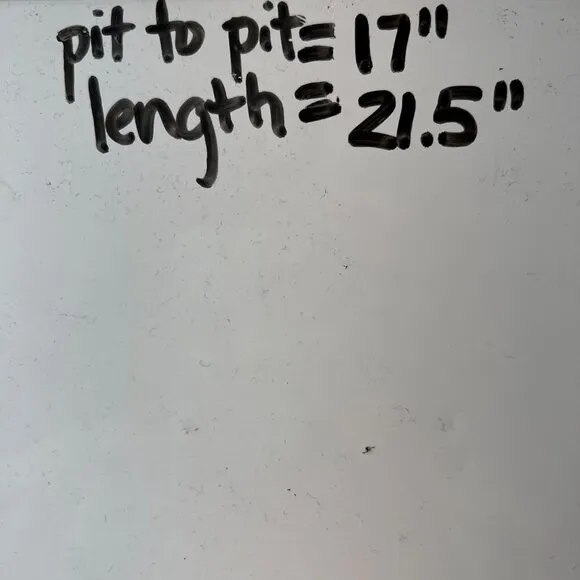 pit to pit= 17"
length= 21.5"